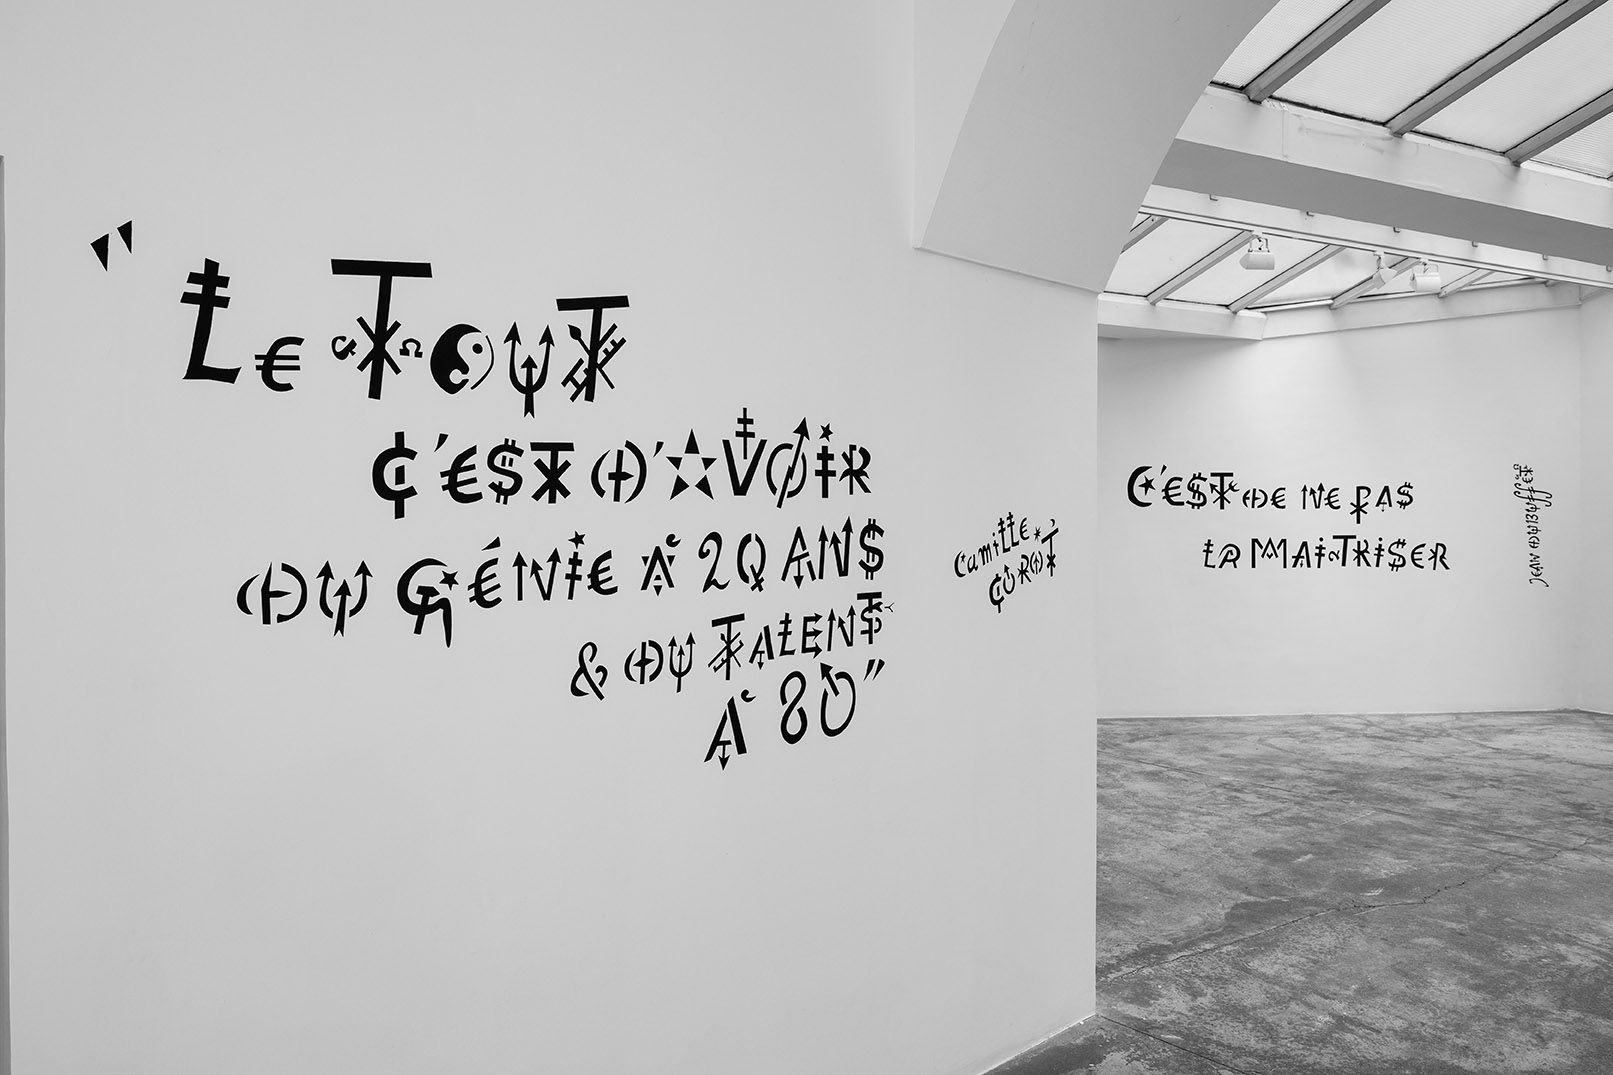 "LE TOUT
C'EST D'AVOIR
DU GÉNIE À 20 ANS
& DU TALENT
À 80"
Camille
COROT
C'EST DE NE PAS
LA MAITRISER
JEAN DUBUFFET